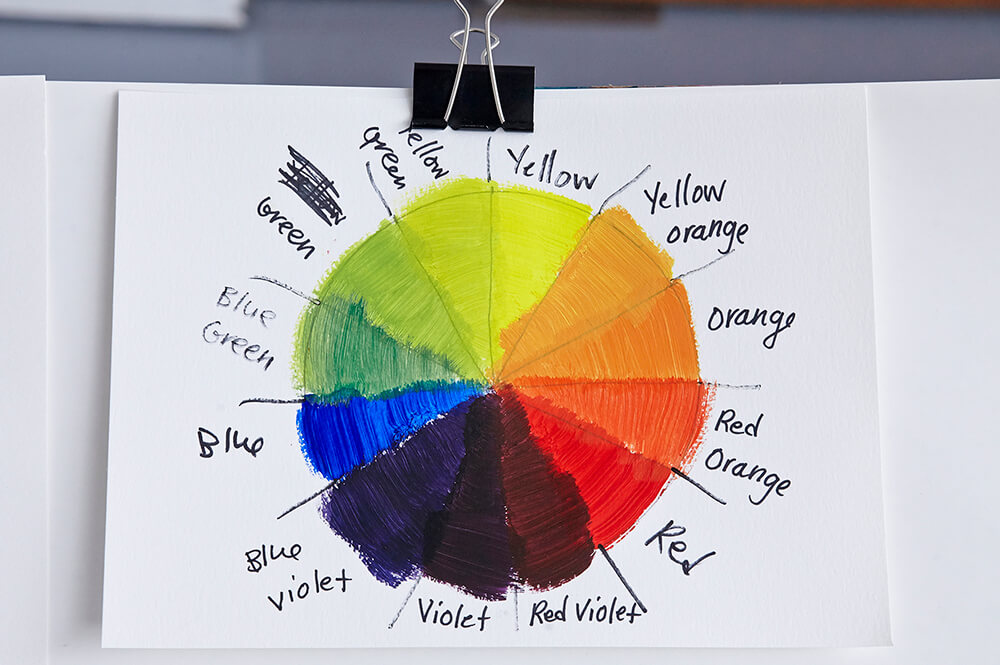 Yellow
Yellow
orange
orange
Red
Orange
Red
Red Violet
Violet
Blue
violet
Blue
Blue
Green
Green
Yellow
Green